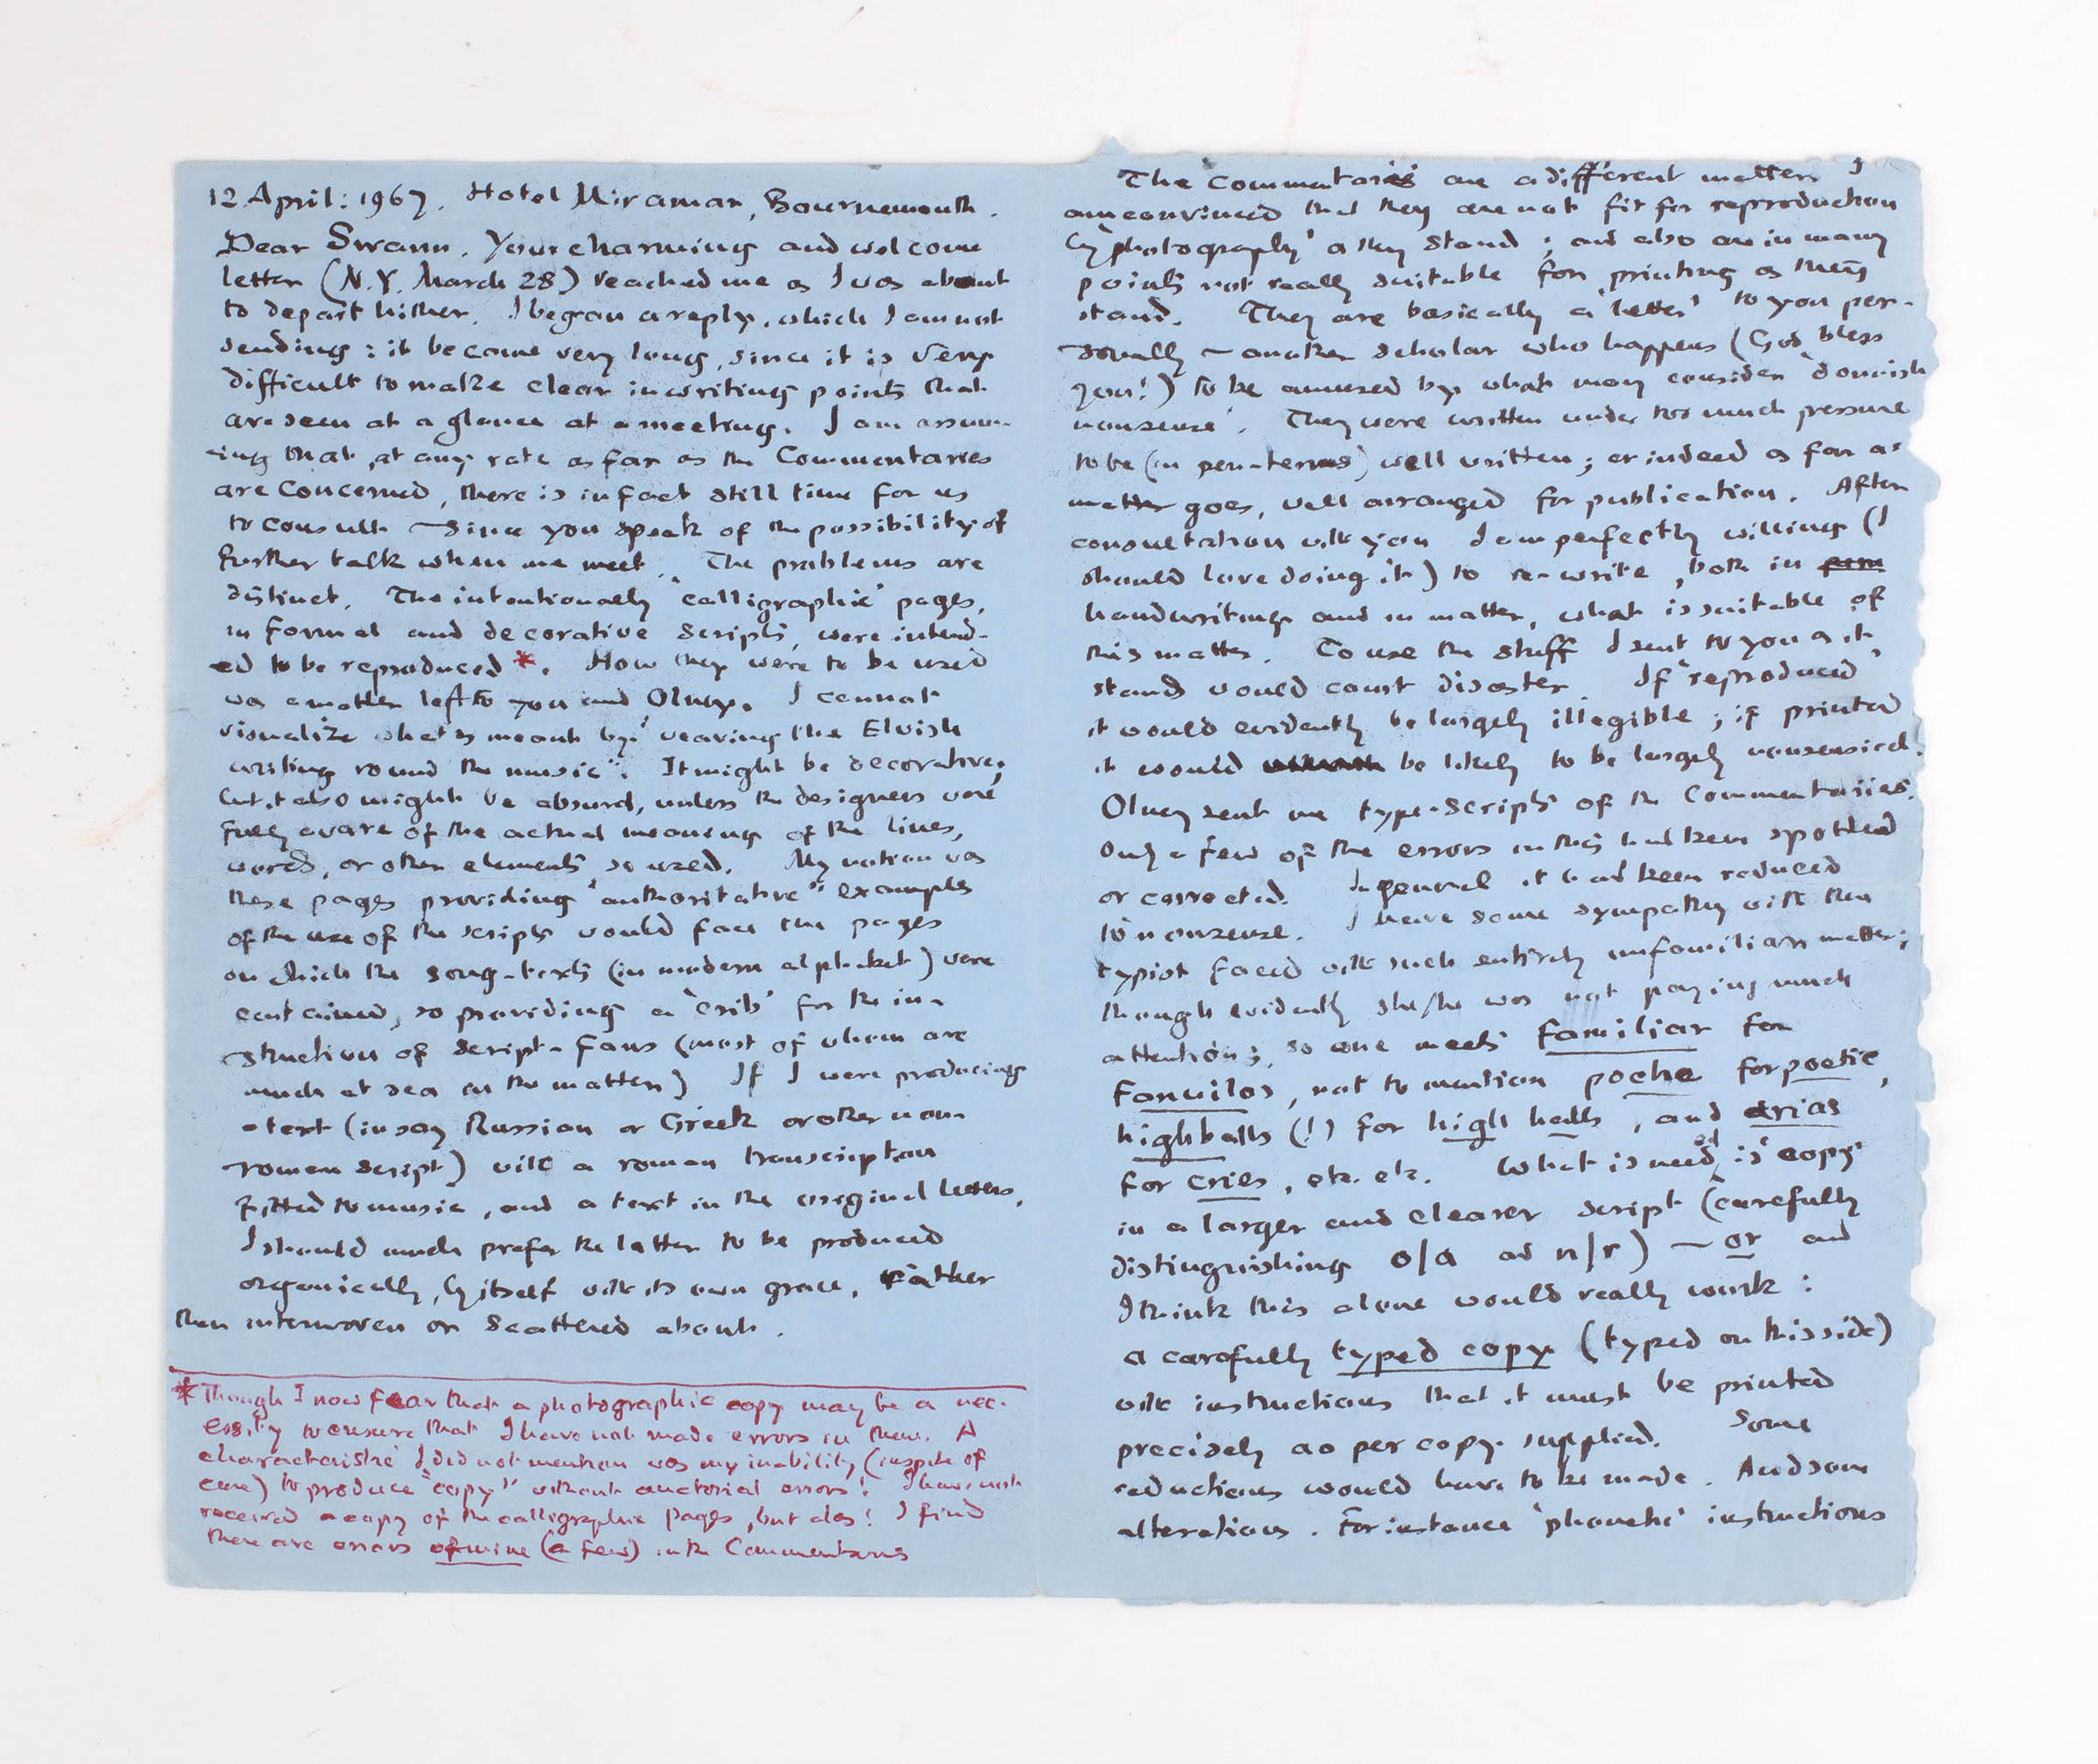 12 April : 1967. Hotel Miramar, Bournemouth.
Dear Swann, Your charming and welcome
letter (N.Y. March 28) reached me as I was about
to depart hither. I began a reply, which I am not
sending : it became very long, since it is very
difficult to make clear in writing points that
are seen at a glance at a meeting. I am assum-
ing that, at any rate as far as the Commentaries
are concerned, there is in fact still time for us
to consult – since you speak of the possibility of
further talk when we meet. The problems are
distinct. The intentionally 'calligraphic' pages,
in formal and decorative scripts, were intend-
ed to be reproduced *. How they were to be used
was a matter left to you and Olney. I cannot
visualize what is meant by "weaving the Elvish
writing round the music". It might be decorative,
but it also might be absurd, unless the designers were
fully aware of the actual meaning of the lines,
words, or other elements, so used. My notion was
these pages providing "authoritative" examples
of the use of the scripts would face the pages
on which the song-texts (in modern alphabet) were
contained, so providing a 'crib' for the in-
struction of script-fans (most of whom are
much at sea in the matter) If I were producing
a text (in say Russian or Greek or other non-
roman script) with a roman transcription
fitted to music, and a text in the original letters,
I should much prefer the latter to be produced
organically, by itself with its own grace, rather
than interwoven or scattered about.
* Though I now fear that a photographic copy may be a nec-
essity to ensure that I have not made errors in them. A
characteristic I did not mention was my inability (inspite of
care) to produce "copy" without auctorial errors! I have not
received a copy of the calligraphic pages, but alas! I find
there are errors of mine (a few) in the Commentaries
The Commentaries are a different matter. I
am convinced that they are not fit for reproduction
by 'photography' as they stand ; and also are in many
points not really suitable for printing as they
stand. They are basically a 'letter' to you per-
sonally – another scholar who happens (God bless
you!) to be amused by what many consider 'donnish
nonsense'. They were written under too much pressure
to be (in pen-terms) well written ; or indeed as far as
matter goes, well arranged for publication. After
consultation with you I am perfectly willing (I
should love doing it) to re-write, both in pen
handwriting and in matter, what is suitable of
this matter. To use the stuff I sent to you as it
stands would court disaster. If 'reproduced'
it would evidently be largely illegible ; if printed
it would be likely to be largely nonsensical.
Olney sent me type-scripts of the Commentaries.
Only a few of the errors in this had been spotted
or corrected. In general it had been reduced
to nonsense. I have some sympathy with the
typist faced with such entirely unfamiliar matter ;
though evidently she/he was not paying much
attention ; so one meets familiar for
Fanuilos, not to mention poche for poetic,
highballs (!) for high hells, and arias
for cries, etc. etc. What is needed is 'copy'
in a larger and clearer script (carefully
distinguishing o/a and n/r) – or and
I think this alone would really work :
a carefully typed copy (typed on this side)
with instructions that it must be printed
precisely as per copy supplied. Some
reductions would have to be made. And some
alterations. For instance 'phonetic' instructions